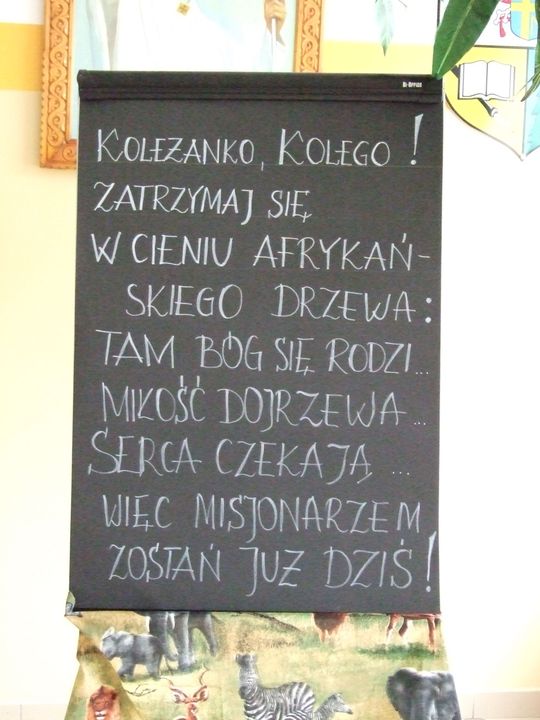 BI-OFFICE
KOLEŻANKO, KOLEGO!
ZATRZYMAJ SIĘ
W CIENIU AFRYKAŃ-
SKIEGO DRZEWA:
TAM BÓG SIĘ RODZI...
MIŁOŚĆ DOJRZEWA...
SERCA CZEKAJĄ...
WIĘC MISJONARZEM
ZOSTAŃ JUŻ DZIŚ!